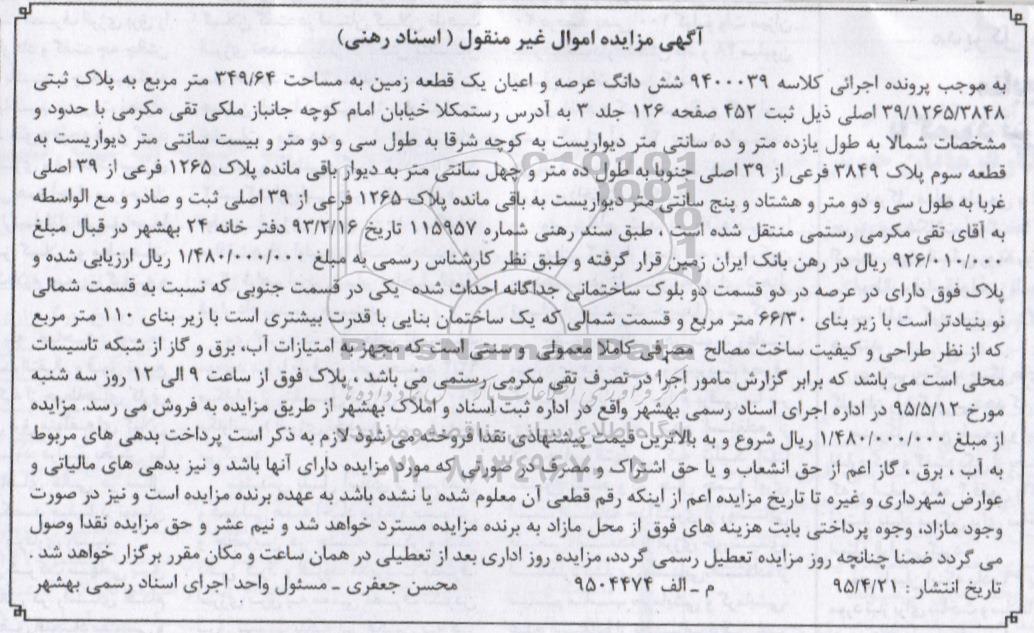 آگهی مزایده اموال غیر منقول ( اسناد رهنی)
به موجب پرونده اجرائی کلاسه ۹۴۰۰۰۳۹ شش دانگ عرصه و اعیان یک قطعه زمین به مساحت ۳۴۹/۶۴ متر مربع به پلاک ثبتی
۳۹/۱۲۶۵/۳۸۴۸ اصلی ذیل ثبت ۴۵۲ صفحه ۱۲۶ جلد ۳ به آدرس رستمکلا خیابان امام کوچه جانباز ملکی تقی مکرمی با حدود و
مشخصات شمالا به طول یازده متر و ده سانتی متر دیواریست به کوچه شرقا به طول سی و دو متر و بیست سانتی متر دیواریست به
قطعه سوم پلاک ۳۸۴۹ فرعی از ۳۹ اصلی جنوبا به طول ده متر و چهل سانتی متر به دیوار باقی مانده پلاک ۱۲۶۵ فرعی از ۳۹ اصلی
غربا به طول سی و دو متر و هشتاد و پنج سانتی متر دیواریست به باقی مانده پلاک ۱۲۶۵ فرعی از ۳۹ اصلی ثبت و صادر و مع الواسطه
به آقای تقی مکرمی رستمی منتقل شده است ، طبق سند رهنی شماره ۱۱۵۹۵۷ تاریخ ۹۳/۲/۱۶ دفتر خانه ۲۴ بهشهر در قبال مبلغ
۹۲۶/۰۱۰/۰۰۰ ریال در رهن بانک ایران زمین قرار گرفته و طبق نظر کارشناس رسمی به مبلغ ۱/۴۸۰/۰۰۰/۰۰۰ ریال ارزیابی شده و
پلاک فوق دارای در عرصه در دو قسمت دو بلوک ساختمانی جداگانه احداث شده یکی در قسمت جنوبی که نسبت به قسمت شمالی
نو بنیادتر است با زیر بنای ۶۶/۳۰ متر مربع و قسمت شمالی که یک ساختمان بنایی با قدرت بیشتری است با زیر بنای ۱۱۰ متر مربع
که از نظر طراحی و کیفیت ساخت مصالح مصرفی کاملا معمولی و سنتی است که مجهز به امتیازات آب، برق و گاز از شبکه تاسیسات
محلی است می باشد که برابر گزارش مامور اجرا در تصرف تقی مکرمی رستمی می باشد ، پلاک فوق از ساعت ۹ الی ۱۲ روز سه شنبه
مورخ ۹۵/۵/۱۲ در اداره اجرای اسناد رسمی بهشهر واقع در اداره ثبت اسناد و املاک بهشهر از طریق مزایده به فروش می رسد. مزایده
از مبلغ ۱/۴۸۰/۰۰۰/۰۰۰ ریال شروع و به بالاترین قیمت پیشنهادی نقدا فروخته می شود لازم به ذکر است پرداخت بدهی های مربوط
به آب ، برق ، گاز اعم از حق انشعاب و یا حق اشتراک و مصرف در صورتی که مورد مزایده دارای آنها باشد و نیز بدهی های مالیاتی و
عوارض شهرداری و غیره تا تاریخ مزایده اعم از اینکه رقم قطعی آن معلوم شده یا نشده باشد به عهده برنده مزایده است و نیز در صورت
وجود مازاد، وجوه پرداختی بابت هزینه های فوق از محل مازاد به برنده مزایده مسترد خواهد شد و نیم عشر و حق مزایده نقدا وصول
می گردد ضمنا چنانچه روز مزایده تعطیل رسمی گردد، مزایده روز اداری بعد از تعطیلی در همان ساعت و مکان مقرر برگزار خواهد شد .
تاریخ انتشار : ۹۵/۴/۲۰ م ـ الف ۹۵۰۴۴۷۴ محسن جعفری ـ مسئول واحد اجرای اسناد رسمی بهشهر
ParsNamadData